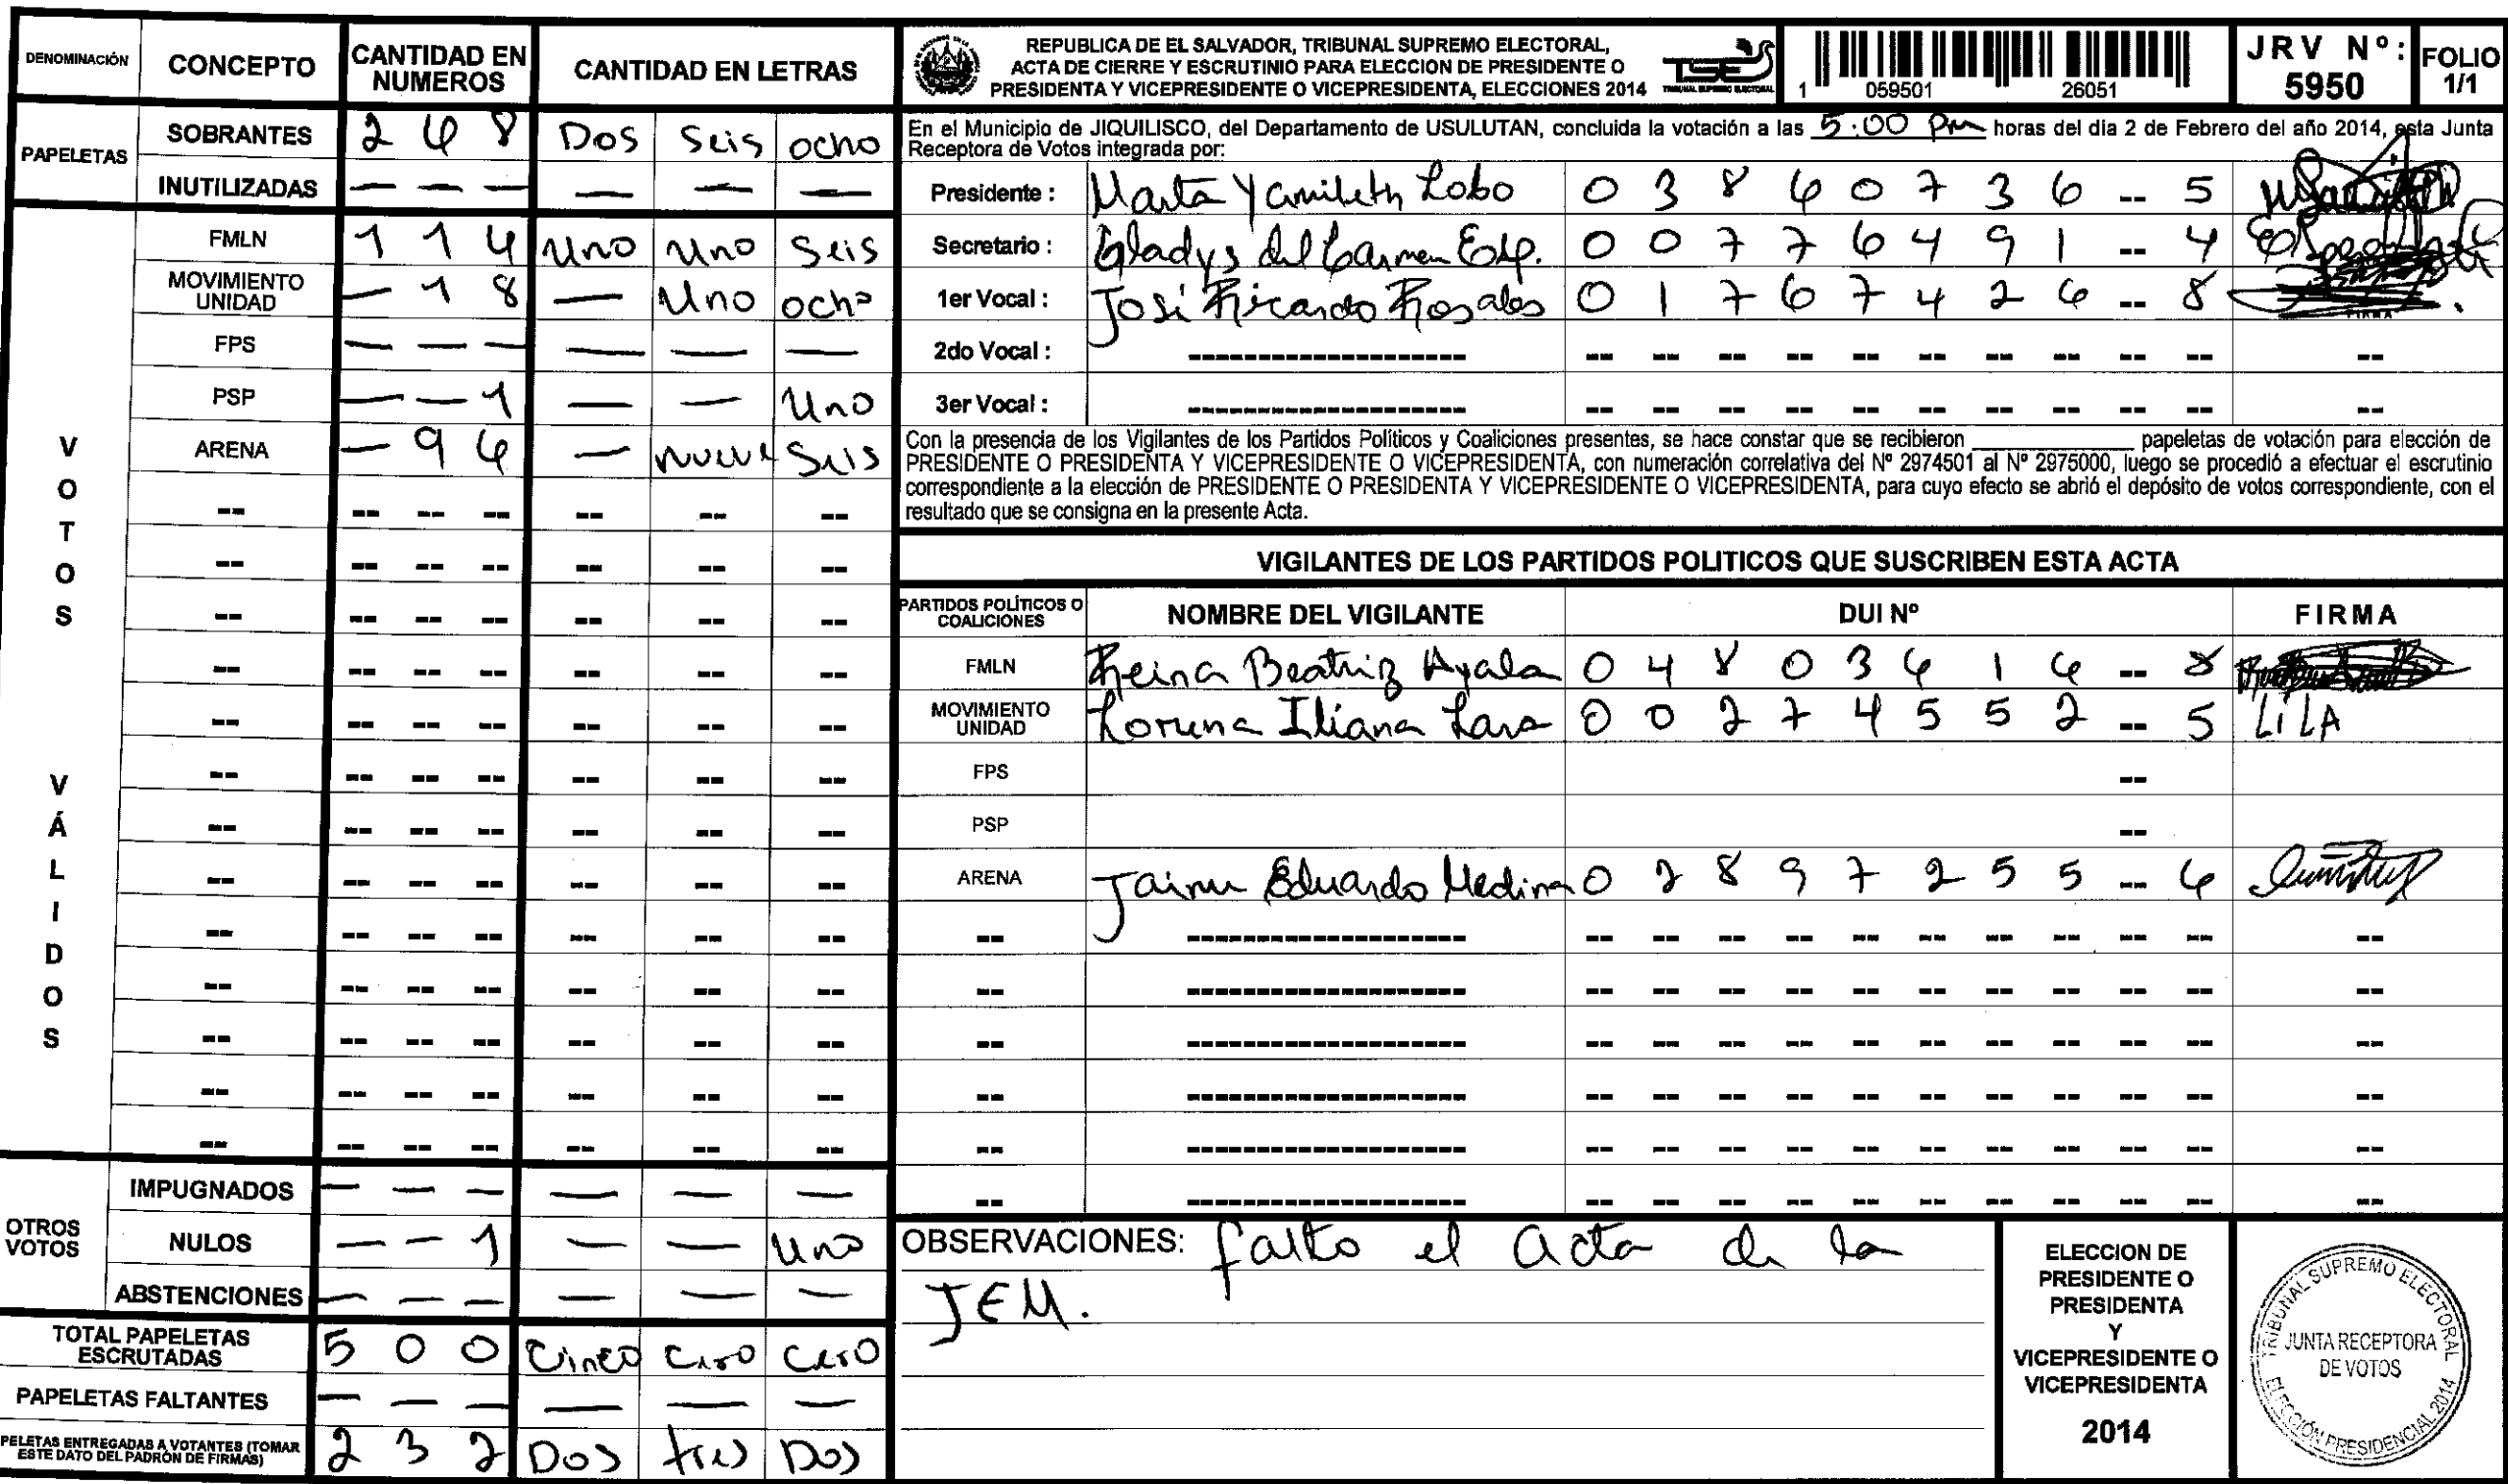 DENOMINACIÓN CONCEPTO CANTIDAD EN NUMEROS CANTIDAD EN LETRAS
PAPELETAS
SOBRANTES 2 6 8 Dos Seis ocho
INUTILIZADAS — — — — — —
VOTOS VÁLIDOS
FMLN 1 1 6 Uno Uno Seis
MOVIMIENTO UNIDAD — 1 8 — Uno ocho
FPS — — — — — —
PSP — — 1 — — Uno
ARENA — 9 6 — nueve Seis
-- -- -- -- -- -- --
-- -- -- -- -- -- --
-- -- -- -- -- -- --
-- -- -- -- -- -- --
-- -- -- -- -- -- --
-- -- -- -- -- -- --
-- -- -- -- -- -- --
-- -- -- -- -- -- --
-- -- -- -- -- -- --
-- -- -- -- -- -- --
-- -- -- -- -- -- --
-- -- -- -- -- -- --
-- -- -- -- -- -- --
OTROS VOTOS
IMPUGNADOS — — — — — —
NULOS — — 1 — — Uno
ABSTENCIONES — — — — — —
TOTAL PAPELETAS ESCRUTADAS 5 0 0 Cinco Cero Cero
PAPELETAS FALTANTES — — — — — —
PELETAS ENTREGADAS A VOTANTES (TOMAR ESTE DATO DEL PADRÓN DE FIRMAS) 2 3 2 Dos tres Dos
REPUBLICA DE EL SALVADOR, TRIBUNAL SUPREMO ELECTORAL,
ACTA DE CIERRE Y ESCRUTINIO PARA ELECCION DE PRESIDENTE O
PRESIDENTA Y VICEPRESIDENTE O VICEPRESIDENTA, ELECCIONES 2014
TSE
TRIBUNAL SUPREMO ELECTORAL
1 059501 26051
JRV Nº: 5950
FOLIO 1/1
En el Municipio de JIQUILISCO, del Departamento de USULUTAN, concluida la votación a las 5:00 pm horas del dia 2 de Febrero del año 2014, esta Junta
Receptora de Votos integrada por:
Presidente : Marta Yamileth Lobo 0 3 8 6 0 7 3 6 -- 5
Secretario : Gladys del Carmen Esp. 0 0 7 7 6 4 9 1 -- 4
1er Vocal : José Ricardo Rosales 0 1 7 6 7 4 2 6 -- 8 FIRMA
2do Vocal : -------------------- -- -- -- -- -- -- -- -- -- -- --
3er Vocal : -------------------- -- -- -- -- -- -- -- -- -- -- --
Con la presencia de los Vigilantes de los Partidos Políticos y Coaliciones presentes, se hace constar que se recibieron ________ papeletas de votación para elección de
PRESIDENTE O PRESIDENTA Y VICEPRESIDENTE O VICEPRESIDENTA, con numeración correlativa del Nº 2974501 al Nº 2975000, luego se procedió a efectuar el escrutinio
correspondiente a la elección de PRESIDENTE O PRESIDENTA Y VICEPRESIDENTE O VICEPRESIDENTA, para cuyo efecto se abrió el depósito de votos correspondiente, con el
resultado que se consigna en la presente Acta.
VIGILANTES DE LOS PARTIDOS POLITICOS QUE SUSCRIBEN ESTA ACTA
PARTIDOS POLÍTICOS O COALICIONES NOMBRE DEL VIGILANTE DUI Nº FIRMA
FMLN Reina Beatriz Ayala 0 4 8 0 3 6 1 6 -- 8
MOVIMIENTO UNIDAD Lorena Iliana Lara 0 0 2 7 4 5 5 2 -- 5 LILA
FPS --
PSP --
ARENA Jaime Eduardo Medina 0 2 8 9 7 2 5 5 -- 6
-- -------------------- -- -- -- -- -- -- -- -- -- -- --
-- -------------------- -- -- -- -- -- -- -- -- -- -- --
-- -------------------- -- -- -- -- -- -- -- -- -- -- --
-- -------------------- -- -- -- -- -- -- -- -- -- -- --
-- -------------------- -- -- -- -- -- -- -- -- -- -- --
-- -------------------- -- -- -- -- -- -- -- -- -- -- --
OBSERVACIONES: falto el acta de la
JEM.
ELECCION DE
PRESIDENTE O
PRESIDENTA
Y
VICEPRESIDENTE O
VICEPRESIDENTA
2014
TRIBUNAL SUPREMO ELECTORAL
JUNTA RECEPTORA
DE VOTOS
ELECCIÓN PRESIDENCIAL 2014